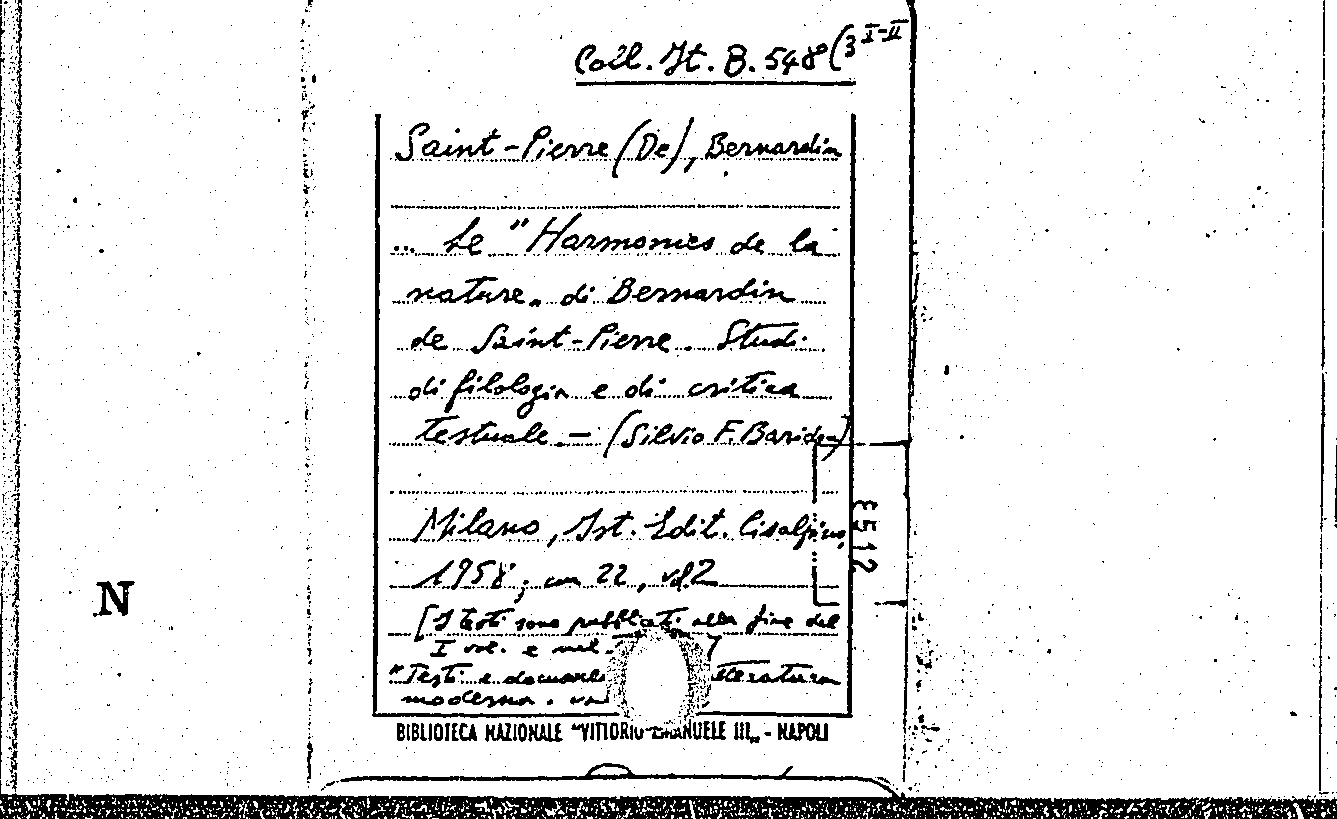 Coll. It. B. 548 (3 I-II
Saint-Pierre (De), Bernardin
... Le "Harmonies de la
nature„ di Bernardin
de Saint-Pierre. Studi
di filologia e di critica
testuale. - (Silvio F. Baridon)
Milano, Ist. Edit. Cisalpino,
1958; cm 22, vol. 2
[I testi sono pubblicati alla fine del
I vol. e nel
"Testi e documenti letteratura
moderna.
BIBLIOTECA NAZIONALE "VITTORIO EMANUELE III„ - NAPOLI
N
E512